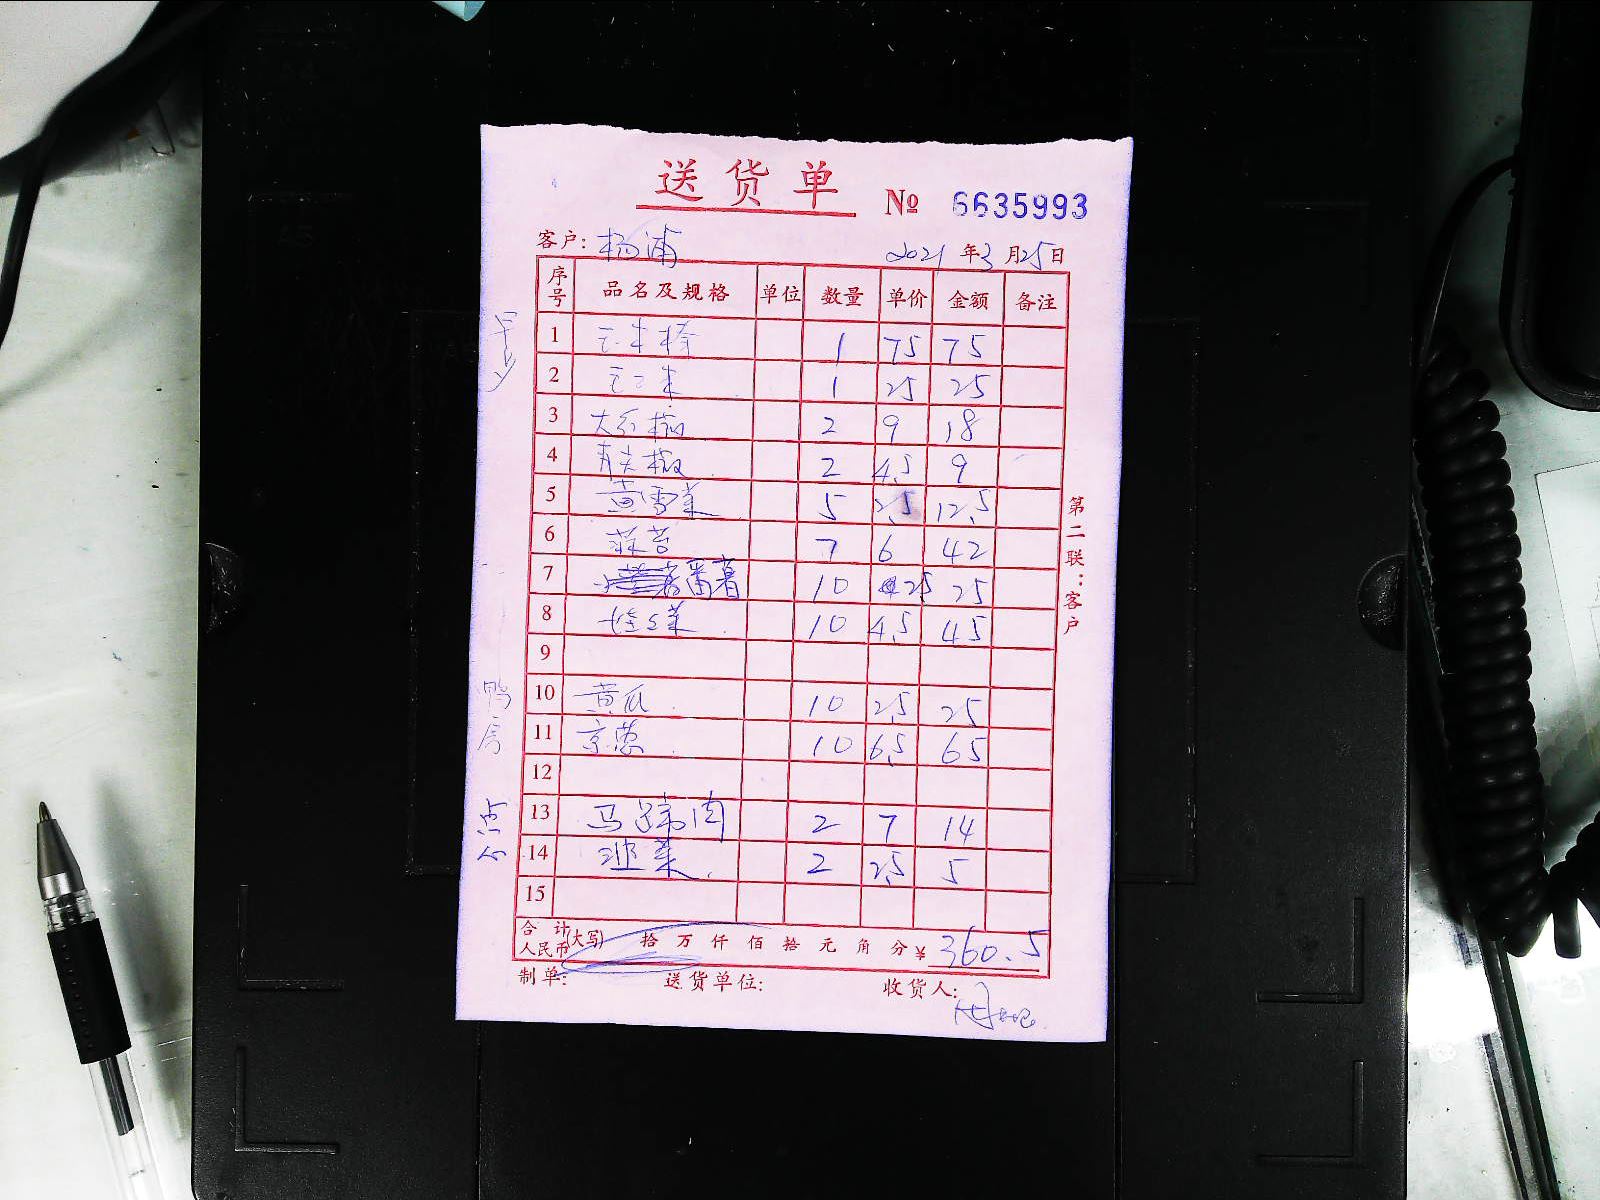 送货单 № 6635993
客户: 杨浦 2021年3月25日
序号 品名及规格 单位 数量 单价 金额 备注
1 1 75 75
2 玉米 1 25 25
3 大红椒 2 9 18
4 青尖椒 2 4.5 9
5 黄雪菜 5 2.5 12.5
6 蒜苔 7 6 42
7 番薯 10 25 25
8 娃娃菜 10 4.5 45
9
10 黄瓜 10 2.5 25
11 京葱 10 6.5 65
12
13 马蹄肉 2 7 14
14 韭菜 2 2.5 5
15
合计人民币(大写) 拾 万 仟 佰 拾 元 角 分 ¥ 360.5
制单: 送货单位: 收货人:
第二联:客户
鸭房
点心